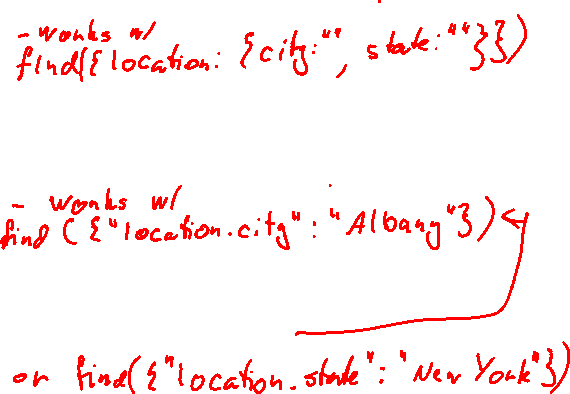 - works w/
find({location: {city:"", state:""}})
- works w/
find ({"location.city": "Albany"})
or find({"location.state": "New York"})